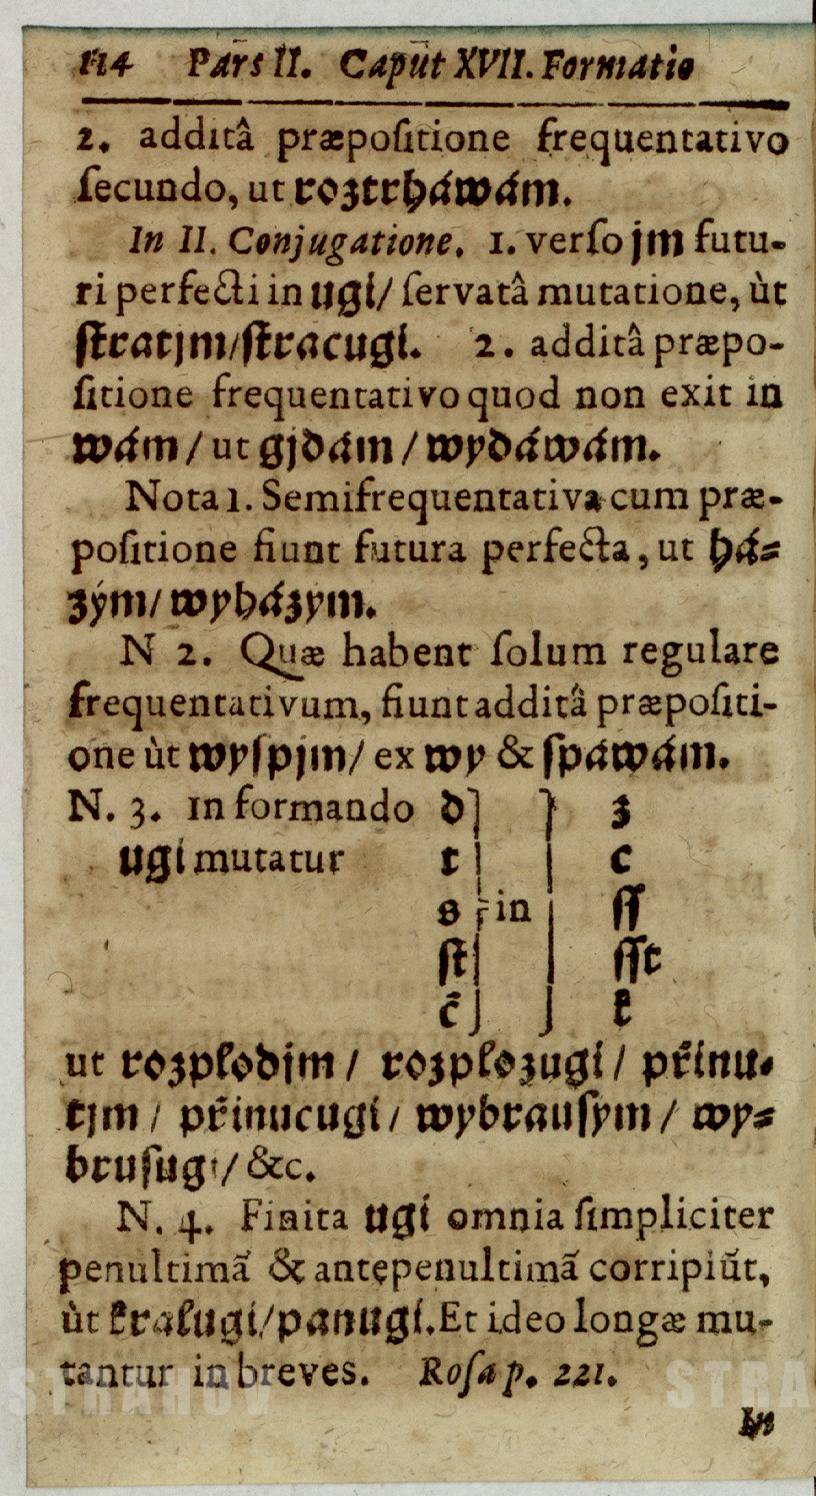 114 Pars II. Caput XVII. Formatio
2. additâ præpoſitione frequentativo
ſecundo, ut roztrháwám.
In II. Conjugatione. 1. verſo jm futu-
ri perfecti in ugi/ ſervatâ mutatione, ùt
ſtratjm/ſtracugi. 2. additâ præpo-
ſitione frequentativo quod non exit in
wám / ut gjdám / wydáwám.
Nota 1. Semifrequentativa cum præ-
poſitione fiunt futura perfecta, ut há-
zým/ wyházym.
N 2. Quæ habent ſolum regulare
frequentativum, fiunt additâ præpoſiti-
one ùt wyſpjm/ ex wy & ſpáwám.
N. 3. In formando d ] } z
ugi mutatur t | | c
s } in | ſſ
ſt | | ſſt
č ] ] k
ut rozplodjm / rozplozugi / přinu-
tjm / přinucugi / wybrauſym / wy-
bruſugi / &c.
N. 4. Finita ugi omnia ſimpliciter
penultimã & antępenultimã corripiũt,
ùt kralugi/panugi. Et ideo longæ mu-
tantur in breves. Roſa p. 221.
In
STRAHOV STRA